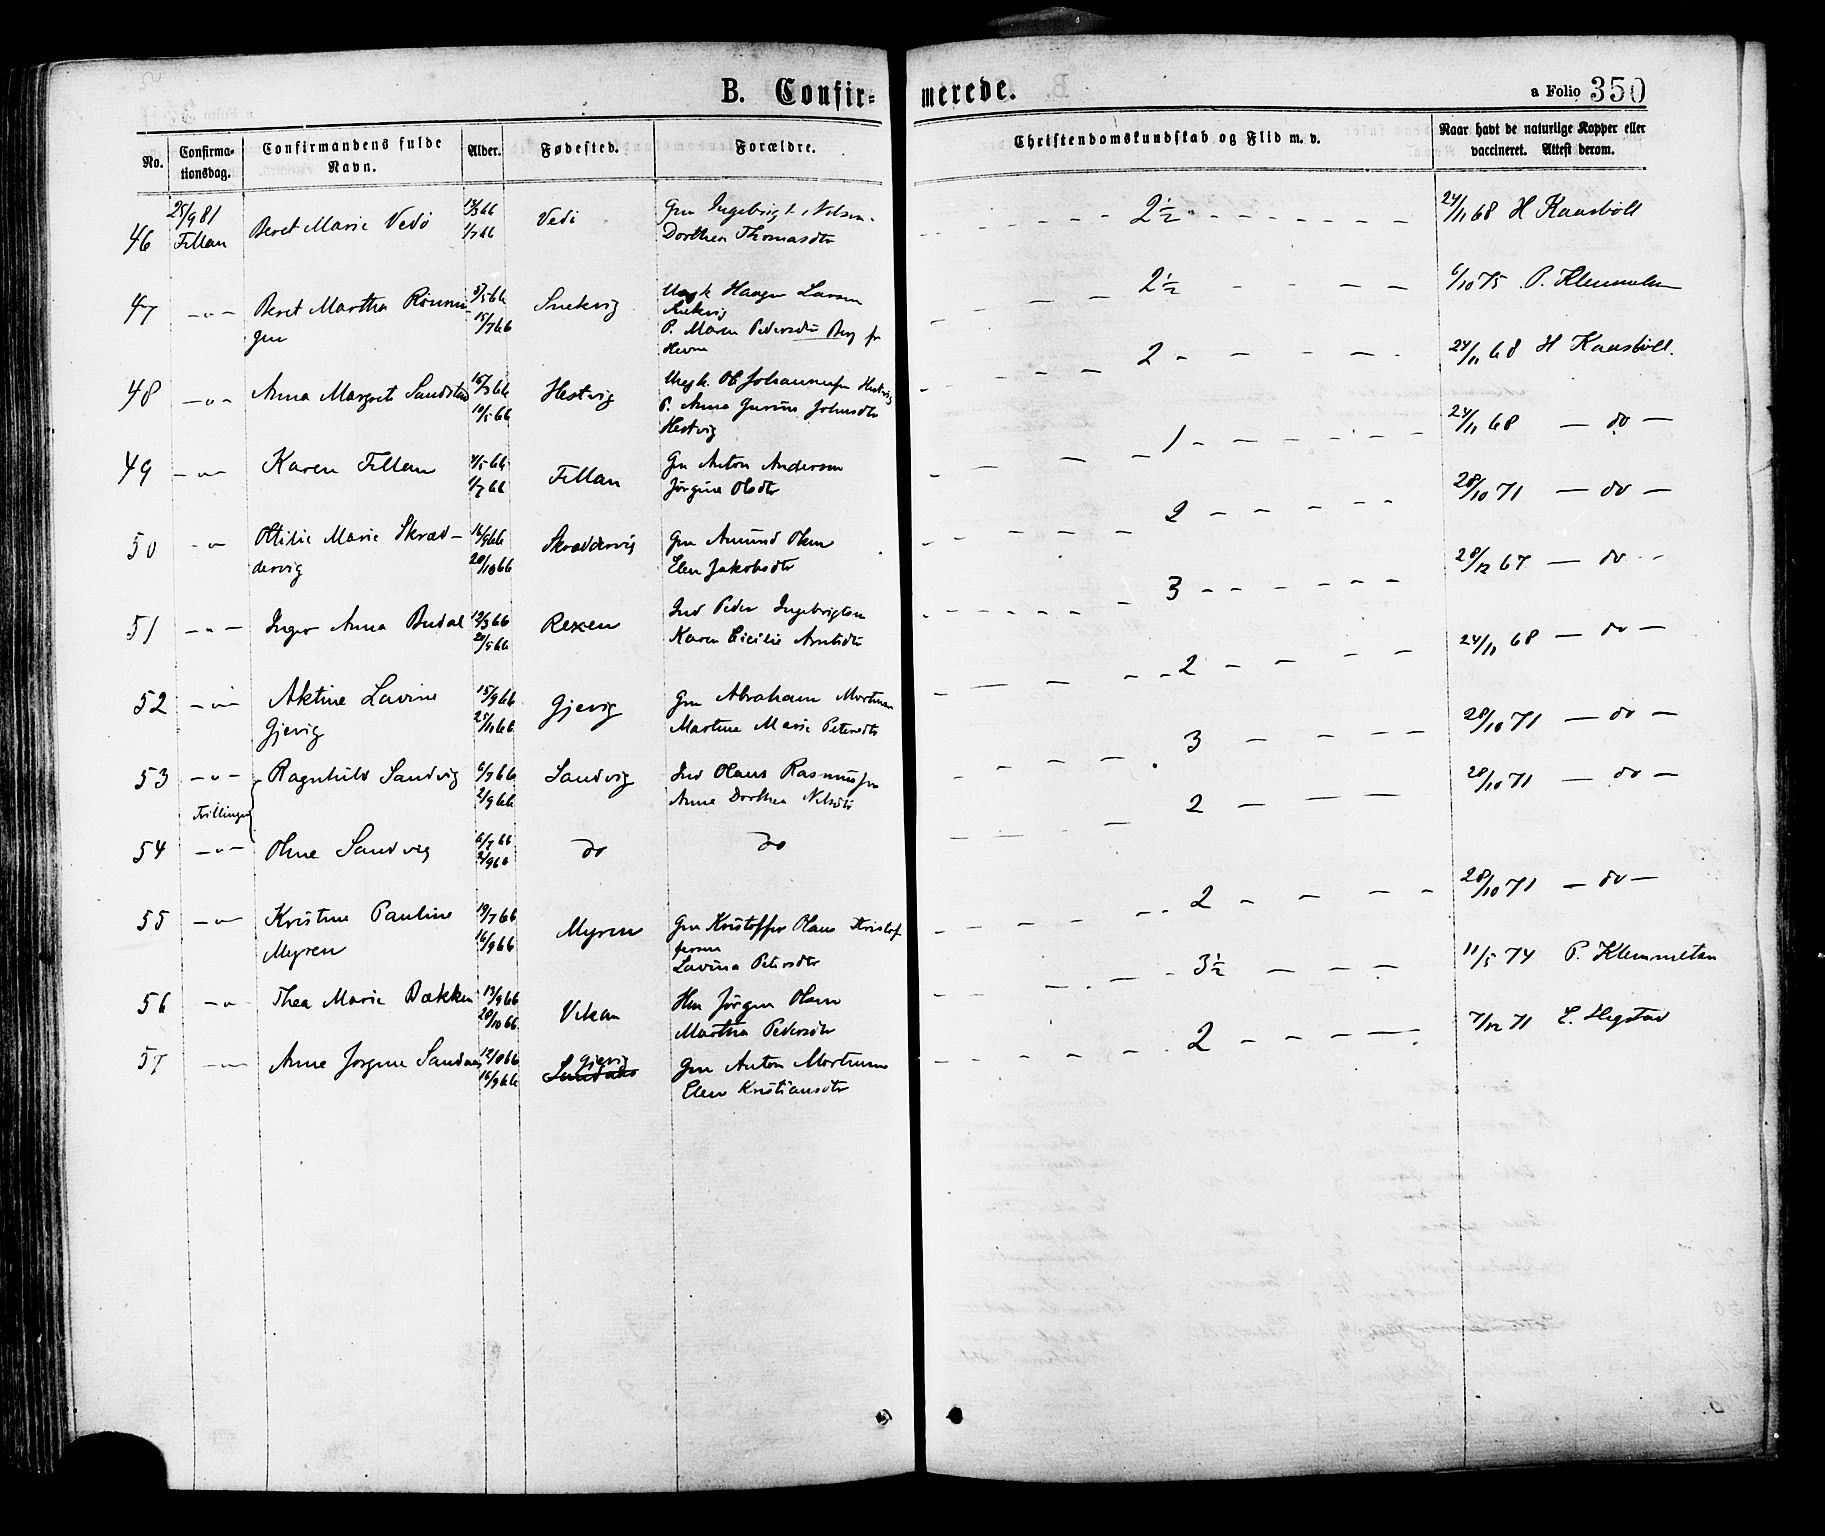 B. Confir=
merede.
a Folio 350
No.
Confirma-
tionsdag.
Confirmandens fulde
Navn.
Alder.
Fødested.
Forældre.
Christendomskundskab og Flid m. v.
Naar havt de naturlige Kopper eller
vaccineret. Attest derom.
46 25/9 81 Fillan
Beret Marie Vedø
1/7 66
Vedø
Gm Ingebrigt Nilsen
Dorthea Thomasdtr
2½
24/11 68 H Kaasbøll
47 – " –
Beret Martha
15/7 66
Snekvig
Ungk Haagen Larsen
Snekvig
P. Maren Pedersdtr Berg fr
Hevne
2½
6/10 75 P. Klemmetsen
48 – " –
Anna Margrete Sandstad
10/5 66
Hestvig
Ungk. Ole Johannesen Hestvig
P. Anna Johnsdtr
Hestvig
2
24/11 68 H Kaasbøll.
49 – " –
Karen Fillan
4/5 66
1/7 66
Fillan
Gm Anton Andersen
Jørgine Olsdtr
1
24/11 68 — do —
50 – " –
Otilie Marie Skræd–
dervig
16/9 66
28/10 66
Skræddervig
Gm Amund Olsen
Elen Jakobsdtr
2
28/10 71 — do —
51 – " –
Inger Anna Budal
12/3 66
20/5 66
Rexen
Ind Peder Ingebrigtsen
Karen Cicilie Arntsdtr
3
28/12 67 — do –
52 – " –
Aktine Lavine
Gjevig
15/9 66
25/11 66
Gjevig
Gm Abraham Mortensen
Martine Marie Petersdtr
2
24/11 68 — do —
53 – " –
Ragnhild Sandvig
6/7 66
2/9 66
Sandvig
Ind Olaus Rasmussen
Anne Dorthea Nilsdtr
3
28/10 71 — do —
Tvillinger
54 – " –
Oline Sandvig
6/7 66
2/9 66
do
do
2
28/10 71 — do —
55 – " –
Kristine Pauline
Myren
19/7 66
16/9 66
Myren
Gm Kristoffer Olaus Kristof
fersen
Lavina Petersdtr
2
28/10 71 — do —
56 – " –
Thea Marie Bækken
13/9 66
28/10 66
Vikan
Hm Jørgen Olsen
Martha Pedersdtr
3½
11/5 74 P. Klemmetsen
57 – " –
Anne Jørgine
16/9 66
Gjevig
Gm Anton Mortensen
Elen Kristiansdtr
2
7/12 71 E. Hegstad